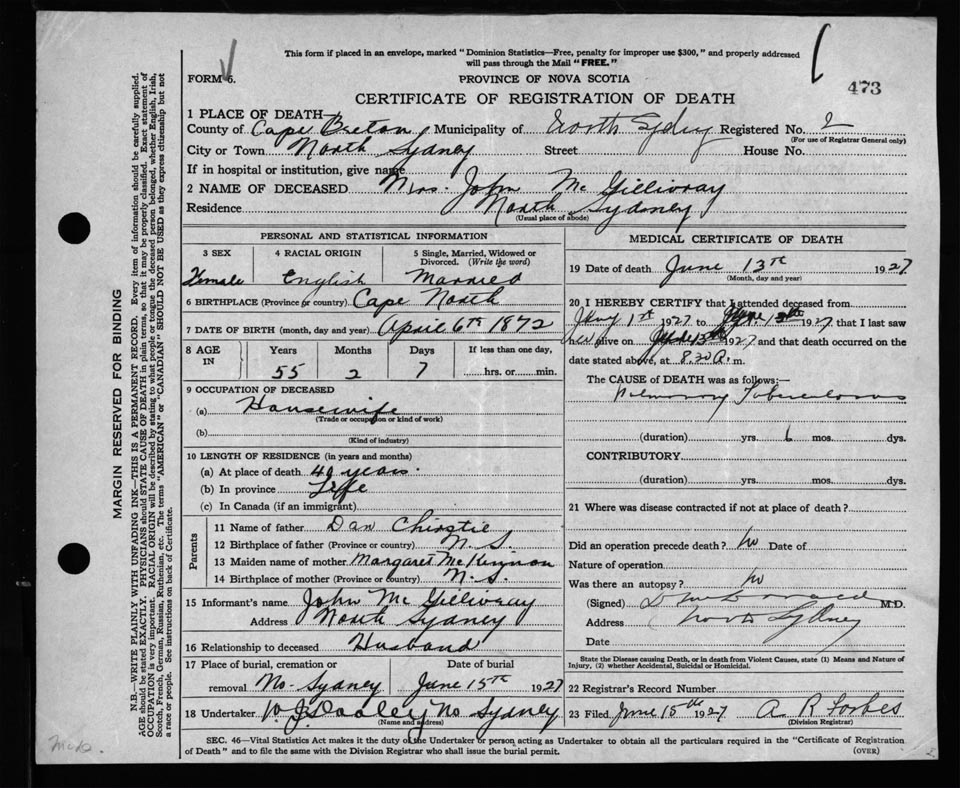 This form if placed in an envelope, marked "Dominion Statistics—Free, penalty for improper use $300," and properly addressed
will pass through the Mail "FREE."
FORM 6.
PROVINCE OF NOVA SCOTIA
473
CERTIFICATE OF REGISTRATION OF DEATH
1 PLACE OF DEATH
County of Cape Breton Municipality of North Sydney Registered No. 2
(For use of Registrar General only)
City or Town North Sydney Street House No.
If in hospital or institution, give name
2 NAME OF DECEASED Mrs. John McGillivray
Residence North Sydney
(Usual place of abode)
PERSONAL AND STATISTICAL INFORMATION
3 SEX 4 RACIAL ORIGIN 5 Single, Married, Widowed or
Divorced. (Write the word)
Female English Married
6 BIRTHPLACE (Province or country) Cape North
7 DATE OF BIRTH (month, day and year) April 6th 1872
8 AGE IN Years Months Days If less than one day,
55 2 7 hrs. or min.
9 OCCUPATION OF DECEASED
(a) Housewife
(Trade or occupation or kind of work)
(b)
(Kind of industry)
10 LENGTH OF RESIDENCE (in years and months)
(a) At place of death 40 years.
(b) In province Life
(c) In Canada (if an immigrant)
Parents
11 Name of father Dan Chirstie
12 Birthplace of father (Province or country) N. S.
13 Maiden name of mother Margaret McKinnon
14 Birthplace of mother (Province or country) N. S.
15 Informant's name John McGillivray
Address North Sydney
16 Relationship to deceased Husband
17 Place of burial, cremation or Date of burial
removal No. Sydney June 15th 1927
18 Undertaker Dooley No Sydney
(Name and address)
MEDICAL CERTIFICATE OF DEATH
19 Date of death June 13th 1927
(Month, day and year)
20 I HEREBY CERTIFY that I attended deceased from
Jany 1st 1927 to June 13th 1927, that I last saw
her alive on 1927 and that death occurred on the
date stated above, at 8.20 A. m.
The CAUSE of DEATH was as follows:—
Pulmonary Tuberculosis
(duration) yrs. 6 mos. dys.
CONTRIBUTORY
(duration) yrs. mos. dys.
21 Where was disease contracted if not at place of death?
Did an operation precede death? No Date of
Nature of operation
Was there an autopsy? No
(Signed) M.D.
Address North Sydney
Date
State the Disease causing Death, or in death from Violent Causes, state (1) Means and Nature of
Injury, (2) whether Accidental, Suicidal or Homicidal.
22 Registrar's Record Number
23 Filed June 15th 1927 A R Forbes
(Division Registrar)
SEC. 46—Vital Statistics Act makes it the duty of the Undertaker or person acting as Undertaker to obtain all the particulars required in the "Certificate of Registration
of Death" and to file the same with the Division Registrar who shall issue the burial permit.
(OVER)
MARGIN RESERVED FOR BINDING
N.B.—WRITE PLAINLY WITH UNFADING INK—THIS IS A PERMANENT RECORD. Every item of information should be carefully supplied.
AGE should be stated EXACTLY. PHYSICIANS should STATE CAUSE OF DEATH in plain terms, so that it may be properly classified. Exact statement of
OCCUPATION is very important. RACIAL ORIGIN will be described by stating to what people or tongue the deceased person belonged, whether English, Irish,
Scotch, French, German, Russian, Ruthenian, etc. The terms "AMERICAN" or "CANADIAN" SHOULD NOT BE USED as they express citizenship but not
a race or people. See instructions on back of Certificate.